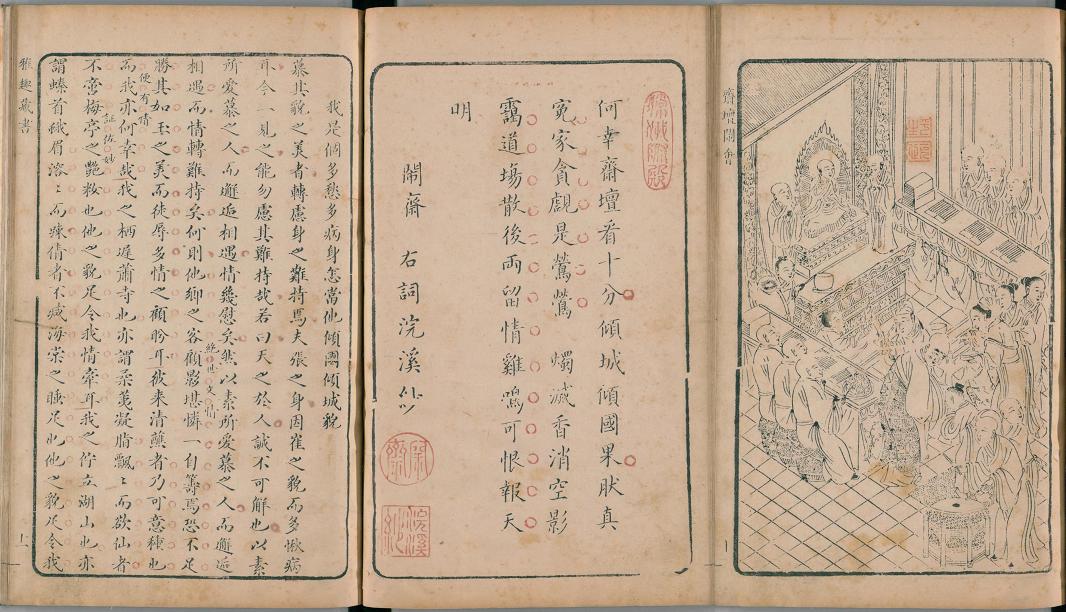 齋壇鬧會
何幸齋壇看十分傾城傾國果肰真
冤家貪覷是鶯鶯 燭滅香消空影
靄道場散後両留情雞鳴可恨報天
明
鬧齋 右詞浣溪沙
我是個多愁多病身怎當他傾國傾城貌
慕其貌之美者轉慮身之難持焉夫張之身因崔之貌而多愁病
耳今一見之能勿慮其難持哉若曰天之於人誠不可解也以素
所愛慕之人而邂逅相遇情幾慰矣然以素所愛慕之人而邂逅
相遇而情轉難持矣何則他鄉之客顧影堪憐一自籌焉恐不足
絕世文情
勝其如玉之美而徒辱多情之顧盼耳彼來清醮者乃可意種也
便有情
而我亦何幸哉我之栖遲蕭寺也亦謂柔荑凝脂飄〻而欲仙者
証佐妙
不啻梅亭之艷敕也他之貌足令我情牽耳我之佇立湖山也亦
謂螓首蛾眉溶〻而竦倩者不减海棠之睡足也他之貌足令我
雅趣藏書
上